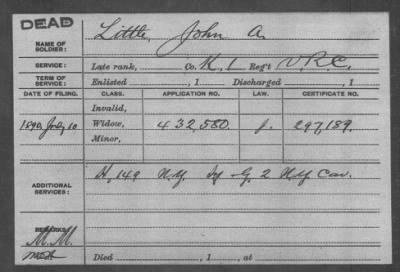 DEAD
NAME OF SOLDIER: Little, John A.
SERVICE: Late rank, Co. K, 1 Reg't V.R.C.
TERM OF SERVICE: Enlisted , 1 Discharged , 1
DATE OF FILING. CLASS. APPLICATION NO. LAW. CERTIFICATE NO.
Invalid,
1890, July 10 Widow, 432,580. J. 297,189.
Minor,
ADDITIONAL SERVICES: H, 149 N.Y. Inf - G. 2 N.Y. Cav.
REMARKS:
M.M.
Died , 1 , at